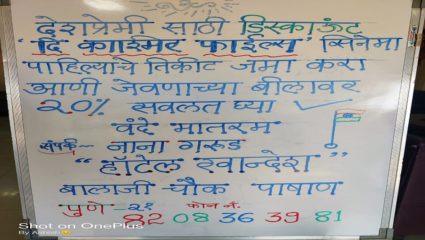 देशप्रेमी साठी डिस्काऊंट
"दि काश्मिर फाईल्स" सिनेमा
पाहिल्याचे तिकीट जमा करा
आणी जेवणाच्या बीलावर
20% सवलत घ्या
वंदे मातरम
संपर्क~ नाना गरुड
"हॉटेल खान्देश"
बालाजी चौक पाषाण
पुणे-२१ फोन नं.
82 08 36 39 81
Shot on OnePlus
By